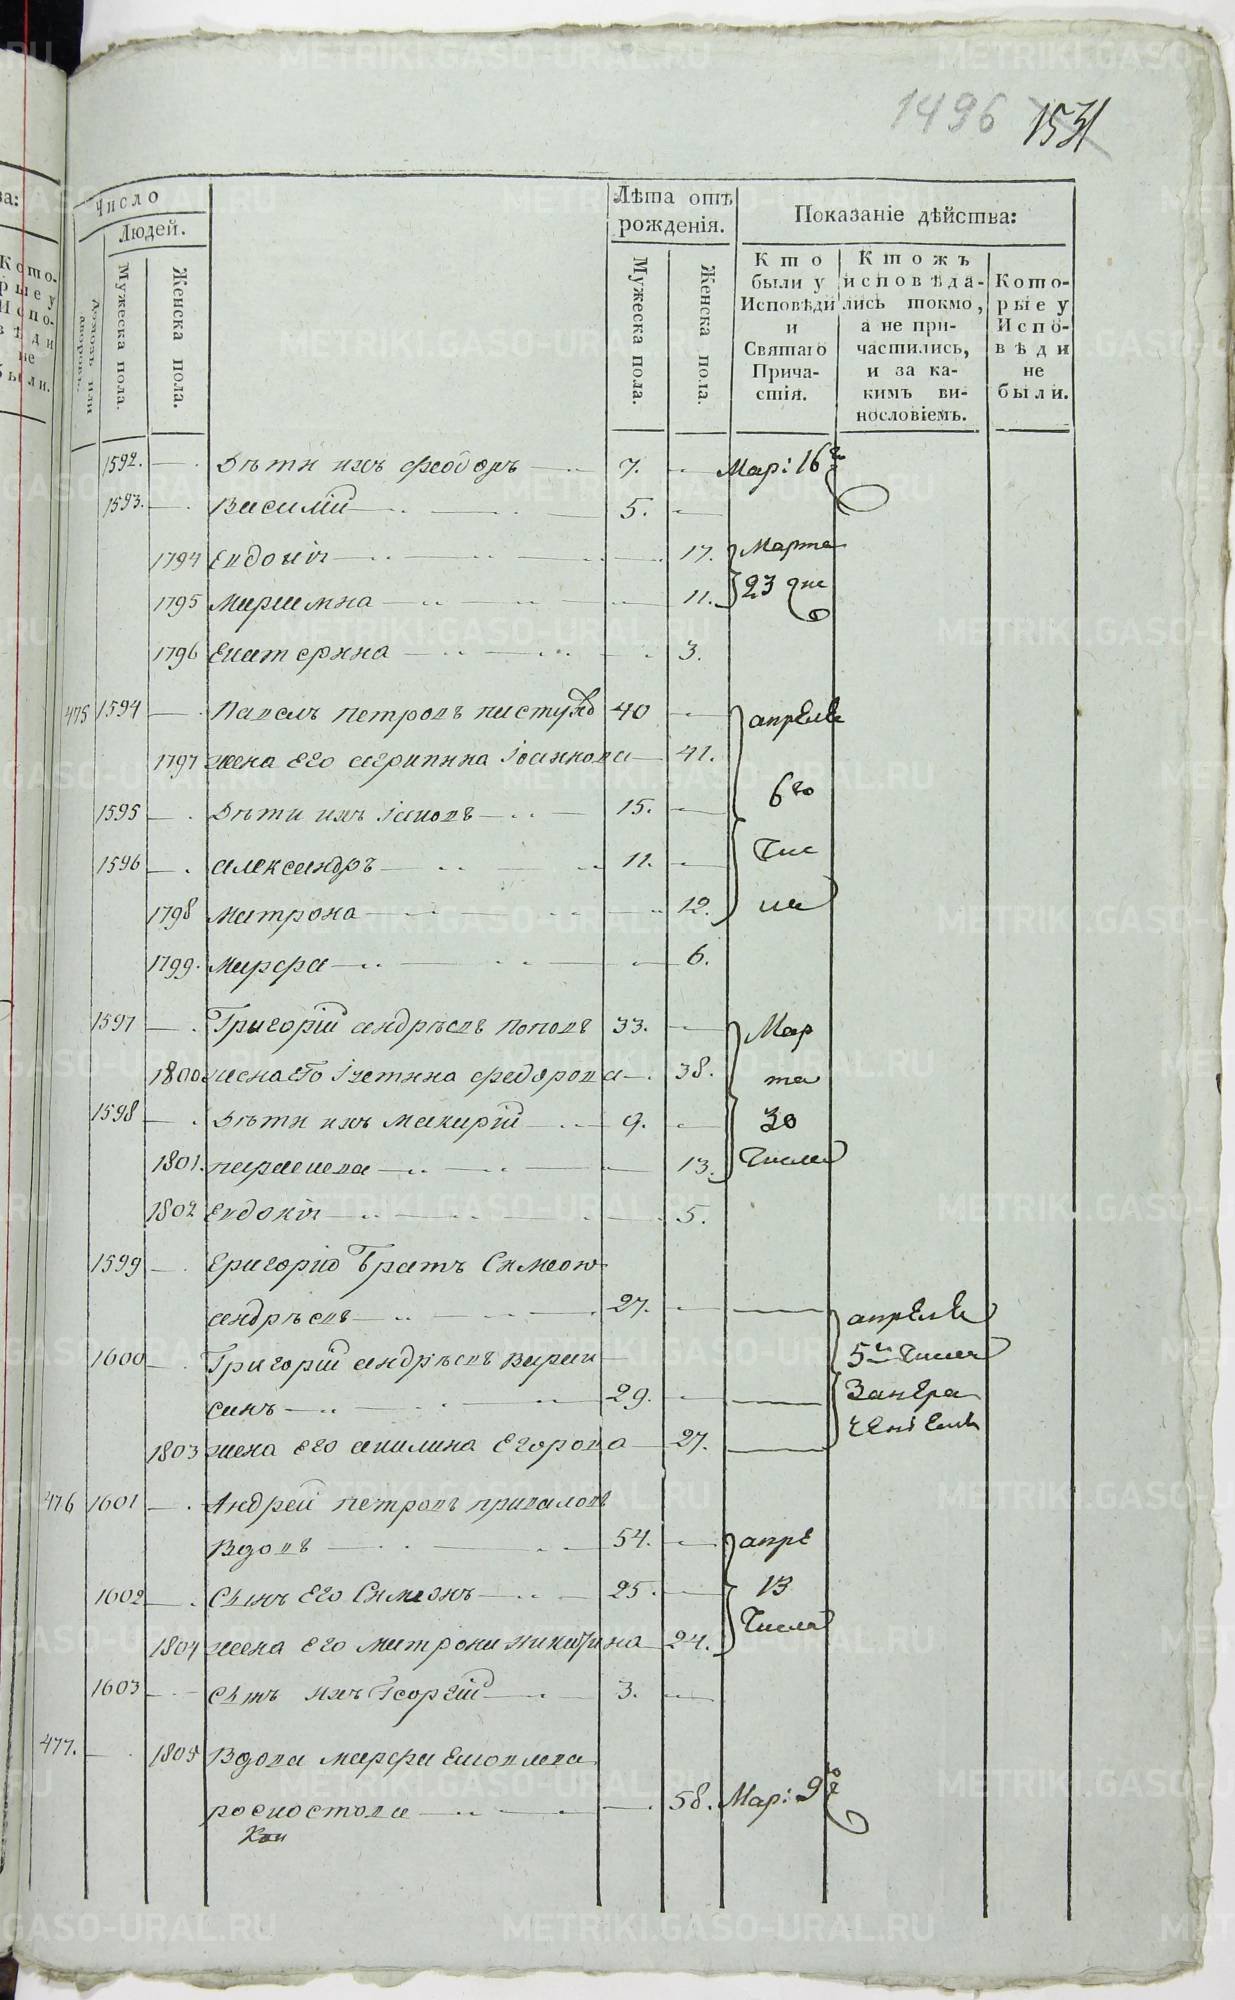 1496 1531
Число
Людей.
Мужеска пола.
Женска пола.
Лѣта отъ рожденія.
Мужеска пола.
Женска пола.
Показаніе дѣйства:
Кто были у Исповѣди и Святаго Причастія.
Ктожъ исповѣдались токмо, а не причастились, и за какимъ винословіемъ.
Которые у Исповѣди не были.
1592. Дѣти ихъ Феодоръ 7. Мар: 16
1593. Василій 5.
1794 Евдокія 17. Марта
1795 Мариамна 11. 23 дня
1796 Екатерина 3.
475 1594 Павелъ Петровъ Пастуховъ 40 апреля
1797 жена его Агрипина Іоаннова 41.
1595 Дѣти ихъ Іаковъ 15. 6го
1596 Александръ 11. Чис
1798 Матрона 12. ла
1799. Марфа 6.
1597 Григорій Андрѣевъ Поповъ 33. Мар
1800 жена его Іустина Федорова 38. та
1598 Дѣти ихъ Макарій 9. 30
1801. Параскева 13. Числа
1802 Евдокія 5.
1599 Григорію Братъ Симеон
Андрѣевъ 27. апреля
1600 Григорій Андрѣевъ Вараксинъ 29. 5 Числа
1803 жена его Акилина Егорова 27.
476 1601 Андрей Петровъ Приваловъ
Вдовъ 54. апре
1602 Сынъ его Симеонъ 25. 13
1804 жена его Матрона Никитина 24. Числа
1603 Сынъ ихъ Георгій 3.
477. 1805 Вдова Марфа Яковлева
58. Мар: 9